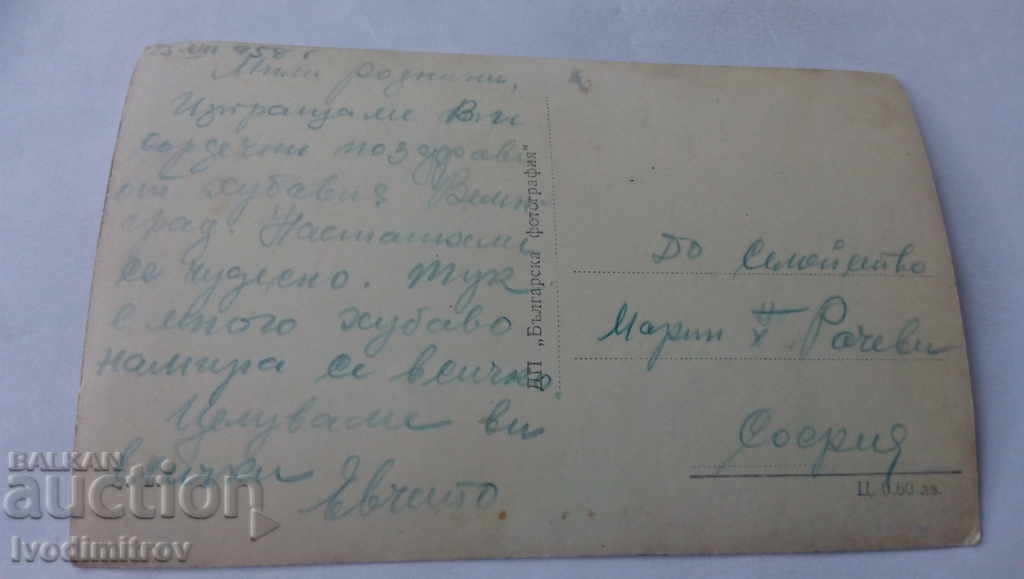 Мили роднини,
Изпращаме Ви
сърдечни поздрави
от хубавия Велин-
град. Настанихме
се чудесно. Тук
е много хубаво
намира се всичко.
Целуваме ви
всички
Евчето
ДП „Българска фотография"
До Семейство
Марин Рачеви
София
Ц. 0.60 лв.
BALKAN
auction
Ivodimitrov